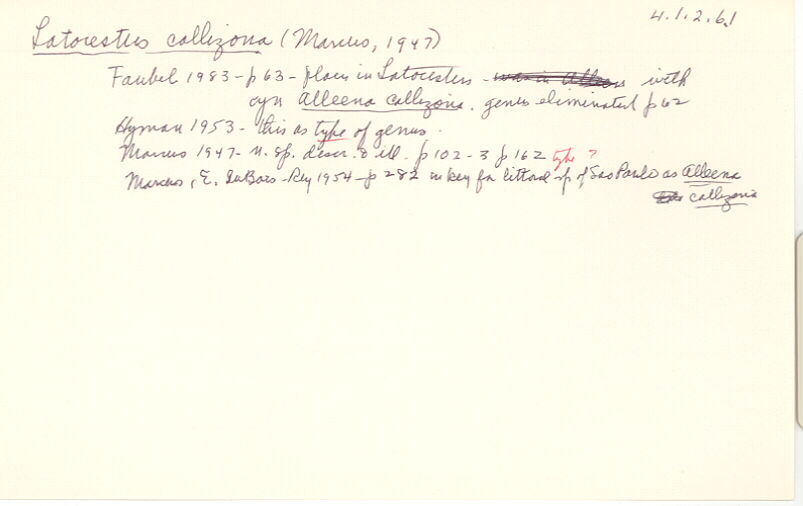 4.1.2.6.1
Latocestus callizona (Marcus, 1947)
Faubel 1983 - p 63 - places in Latocestus - was in Alleena with
syn Alleena callizona. genus eliminated p 62
Hyman 1953 - this as type of genus.
Marcus 1947 - n. sp. descr. & ill. p 102-3 p 162 type ?
Marcus, E. DuBois-Rey 1954 - p 282 in key for littoral sp of Sao Paulo as Alleena
callizona